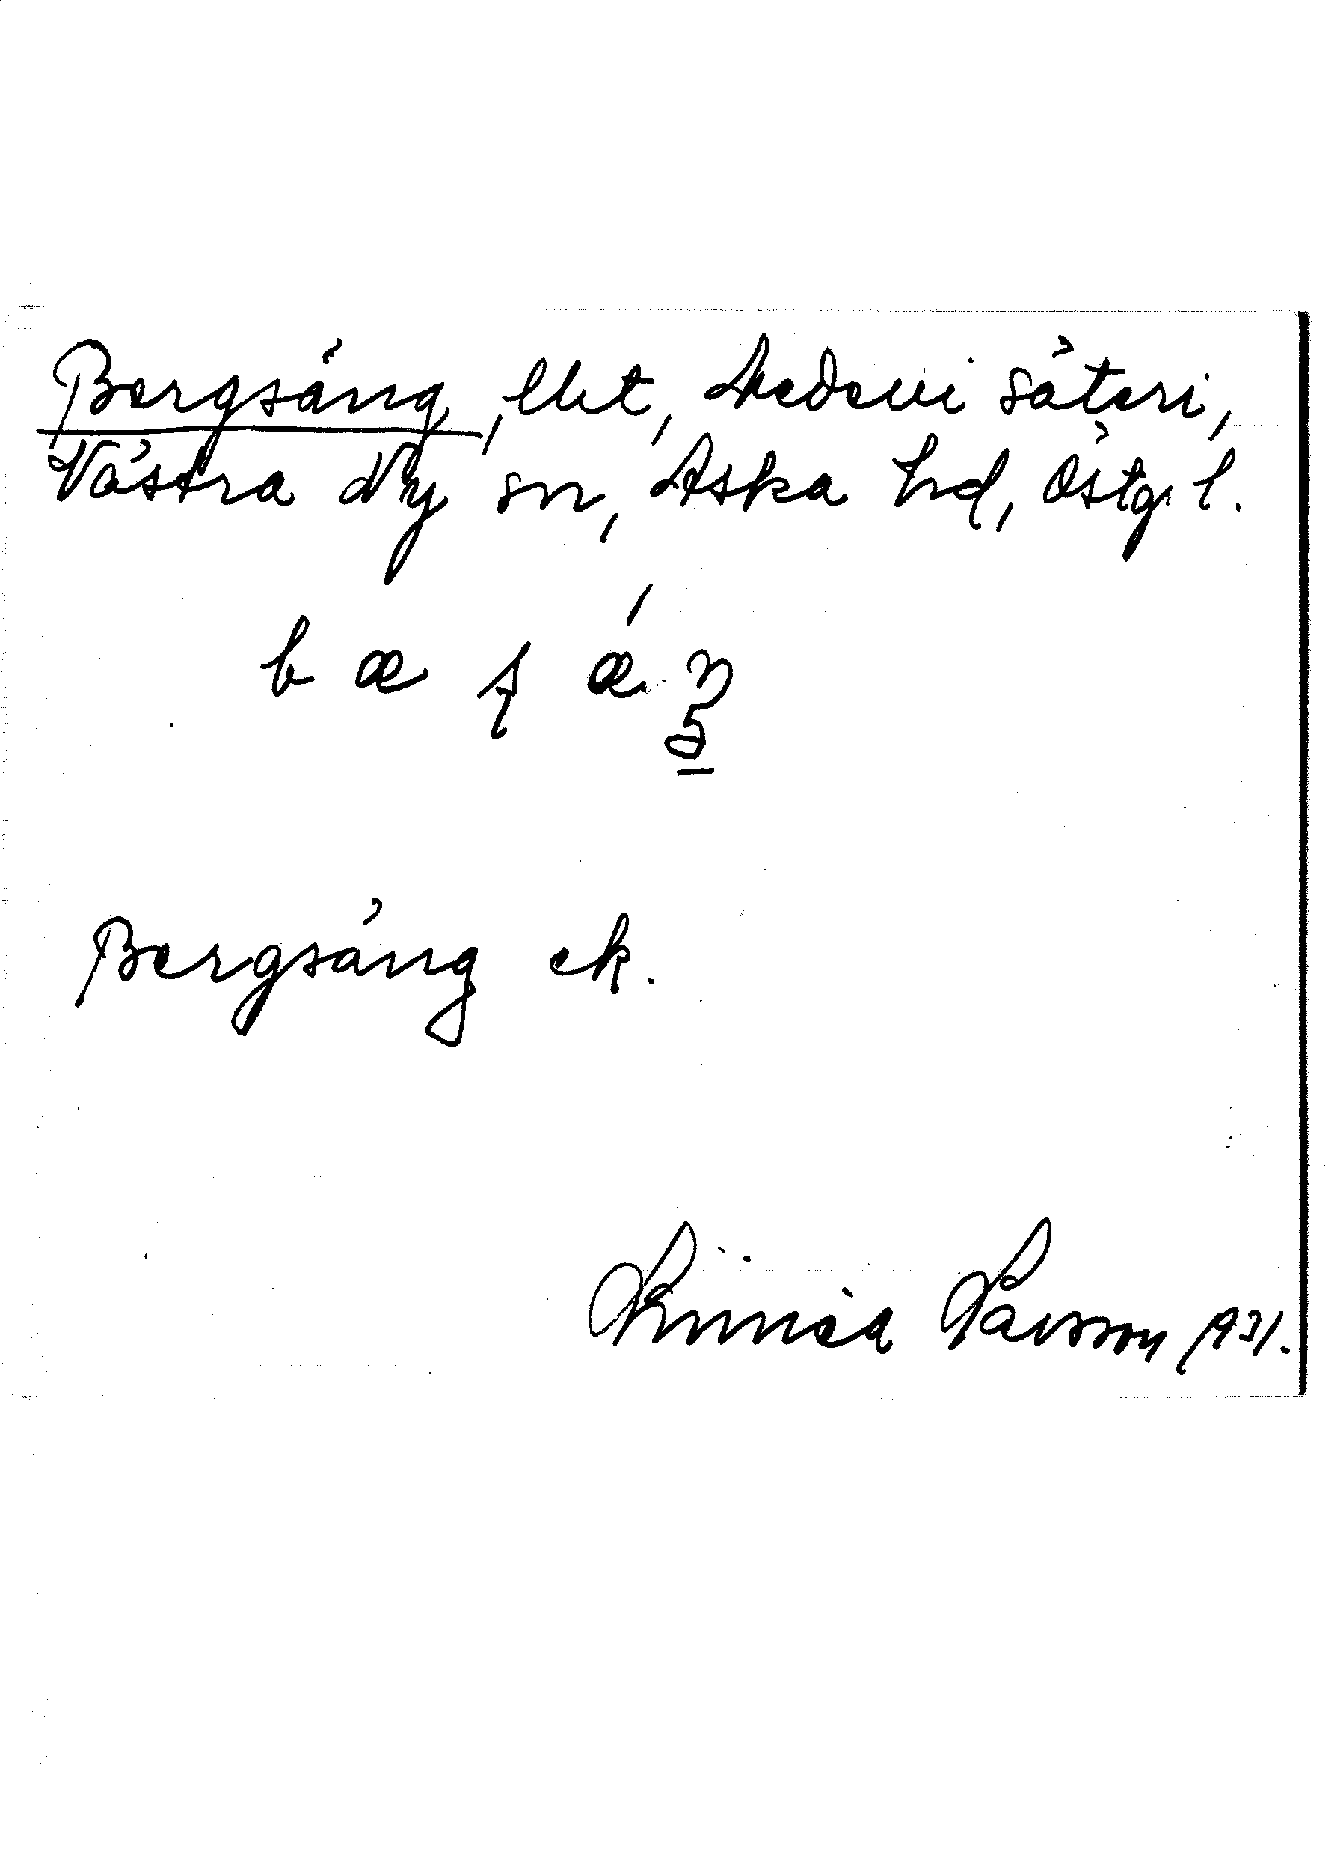 Bergsäng, lht, Medevi säteri,
Västra Ny sn, Aska hd, Östg. l.
Bergsäng ek.
Linnéa Larsson 1931.